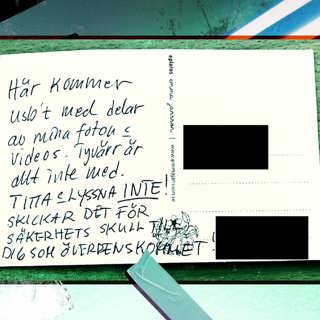 Här kommer
usb't med delar
av mina foton &
videos. Tyvärr är
allt inte med.
TITTA & LYSSNA INTE!
SKICKAR DET FÖR
SÄKERHETS SKULL TILL
DIG SOM ÖVERDENSKOMMET!